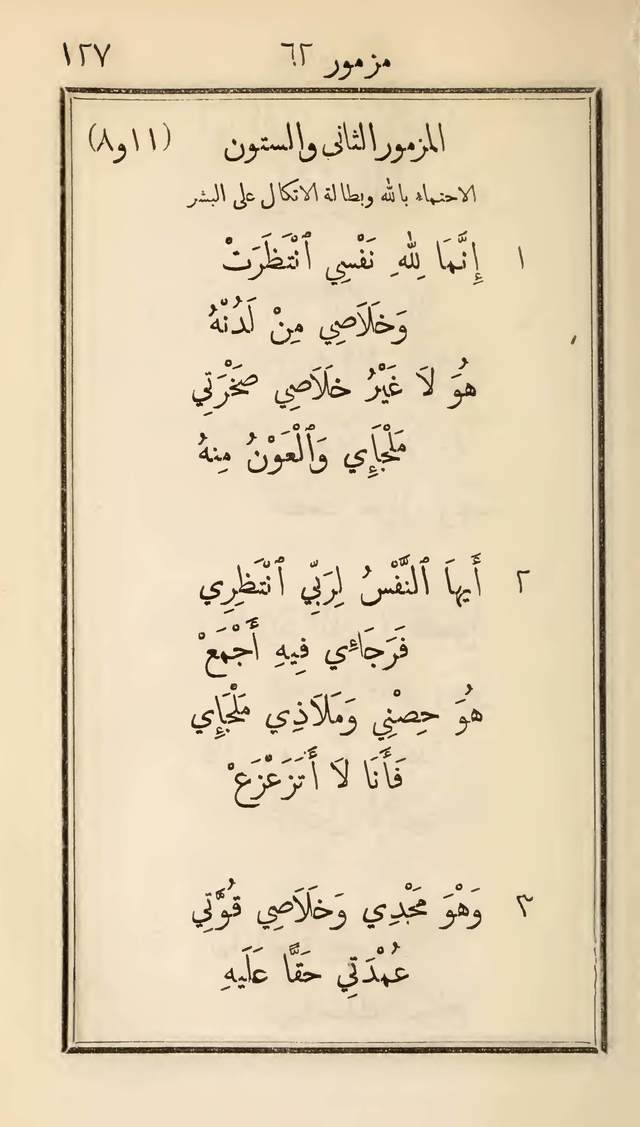 مزمور ٦٢ ١٢٧
المزمور الثانى والستون (١١ و٨)
الاحتماء بالله وبطالة الاتكال على البشر
١ إِنَّمَا لِلهِ نَفْسِي ٱنْتَظَرَتْ
وَخَلَاصِي مِنْ لَدُنْهُ
هُوَ لَا غَيْرُ خَلَاصِي صَخْرَتِي
مَلْجَإِي وَٱلْعَوْنُ مِنهُ
٢ أَيهاَ ٱلنَّفْسُ لِرَبِّي ٱنْتَظِرِي
فَرَجَائِي فِيهِ أَجْمَعْ
هُوَ حِصْنِي وَمَلَاذِي مَلْجَإِي
فَأَنَا لَا أَتَزَعْزَعْ
٣ وَهْوَ مَجْدِي وَخَلَاصِي قُوَّتِي
عُمْدَتِي حَقًّا عَلَيهِ